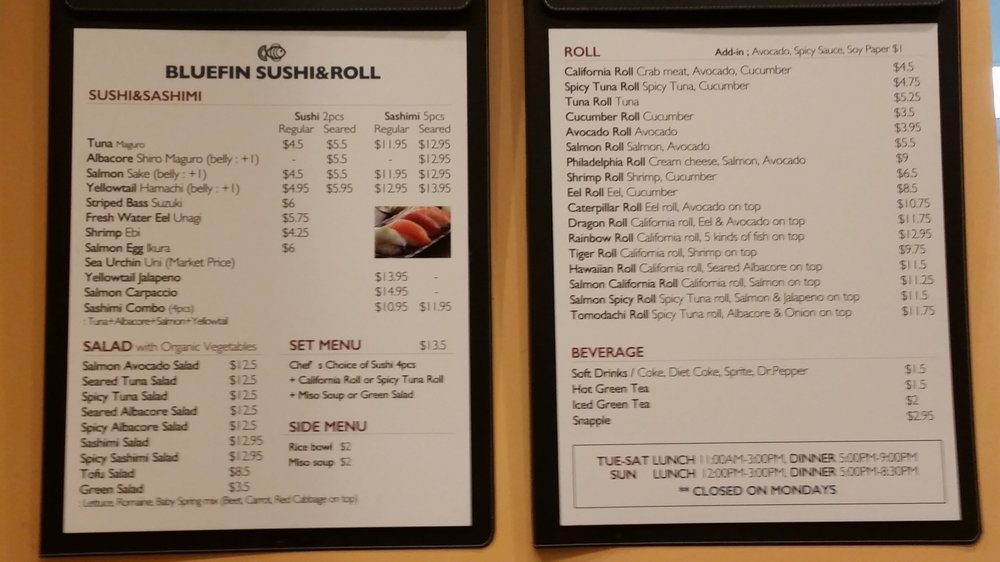 BLUEFIN SUSHI&ROLL
SUSHI&SASHIMI
Sushi 2pcs Sashimi 5pcs
Regular Seared Regular Seared
Tuna Maguro $4.5 $5.5 $11.95 $12.95
Albacore Shiro Maguro (belly : +1) - $5.5 - $12.95
Salmon Sake (belly : +1) $4.5 $5.5 $11.95 $12.95
Yellowtail Hamachi (belly : +1) $4.95 $5.95 $12.95 $13.95
Striped Bass Suzuki $6
Fresh Water Eel Unagi $5.75
Shrimp Ebi $4.25
Salmon Egg Ikura $6
Sea Urchin Uni (Market Price)
Yellowtail Jalapeno $13.95 -
Salmon Carpaccio $14.95 -
Sashimi Combo (4pcs) $10.95 $11.95
: Tuna+Albacore+Salmon+Yellowtail
SALAD with Organic Vegetables
Salmon Avocado Salad $12.5
Seared Tuna Salad $12.5
Spicy Tuna Salad $12.5
Seared Albacore Salad $12.5
Spicy Albacore Salad $12.5
Sashimi Salad $12.95
Spicy Sashimi Salad $12.95
Tofu Salad $8.5
Green Salad $3.5
: Lettuce, Romaine, Baby Spring mix (Beet, Carrot, Red Cabbage on top)
SET MENU $13.5
Chef' s Choice of Sushi 4pcs
+ California Roll or Spicy Tuna Roll
+ Miso Soup or Green Salad
SIDE MENU
Rice bowl $2
Miso soup $2
ROLL Add-in ; Avocado, Spicy Sauce, Soy Paper $1
California Roll Crab meat, Avocado, Cucumber $4.5
Spicy Tuna Roll Spicy Tuna, Cucumber $4.75
Tuna Roll Tuna $5.25
Cucumber Roll Cucumber $3.5
Avocado Roll Avocado $3.95
Salmon Roll Salmon, Avocado $5.5
Philadelphia Roll Cream cheese, Salmon, Avocado $9
Shrimp Roll Shrimp, Cucumber $6.5
Eel Roll Eel, Cucumber $8.5
Caterpillar Roll Eel roll, Avocado on top $10.75
Dragon Roll California roll, Eel & Avocado on top $11.75
Rainbow Roll California roll, 5 kinds of fish on top $12.95
Tiger Roll California roll, Shrimp on top $9.75
Hawaiian Roll California roll, Seared Albacore on top $11.5
Salmon California Roll California roll, Salmon on top $11.25
Salmon Spicy Roll Spicy Tuna roll, Salmon & Jalapeno on top $11.5
Tomodachi Roll Spicy Tuna roll, Albacore & Onion on top $11.75
BEVERAGE
Soft Drinks / Coke, Diet Coke, Sprite, Dr.Pepper $1.5
Hot Green Tea $1.5
Iced Green Tea $2
Snapple $2.95
TUE-SAT LUNCH 11:00AM-3:00PM, DINNER 5:00PM-9:00PM
SUN LUNCH 12:00PM-3:00PM, DINNER 5:00PM-8:30PM
** CLOSED ON MONDAYS